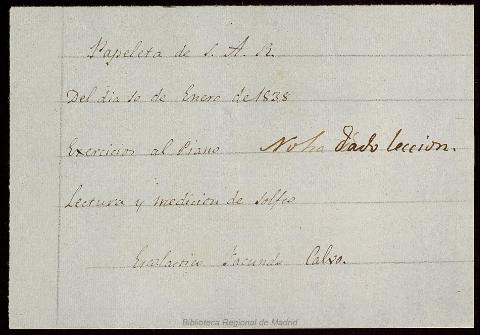 Papeleta de S. A. R.
Del dia 10 de Enero de 1838
Exercicios al Piano No ha dado leccion.
Lectura y medicion de solfeo
Escolastico Facundo Calvo.
Biblioteca Regional de Madrid